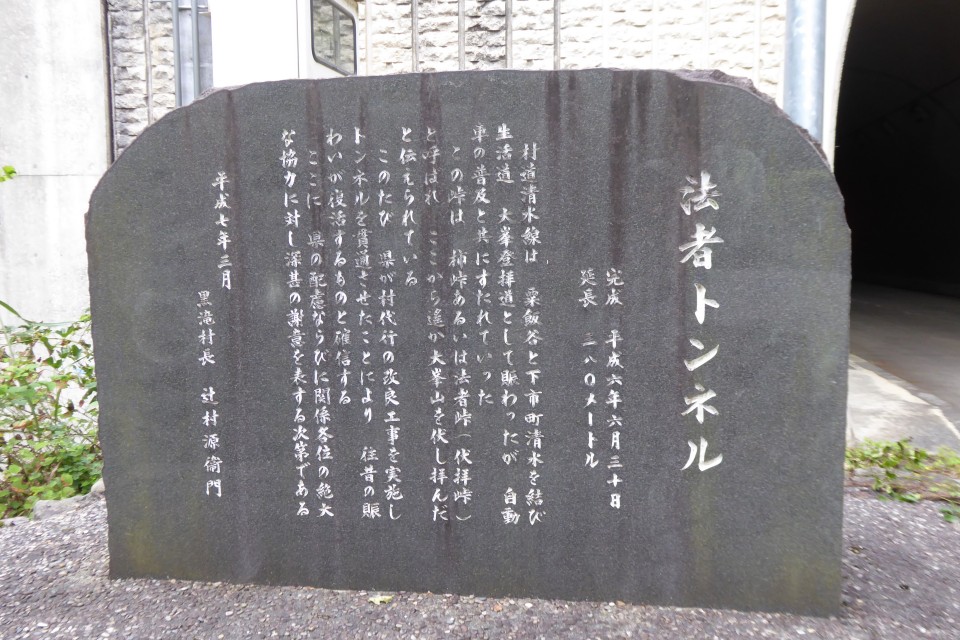 法者トンネル
完成 平成六年六月三十日
延長 二八〇メートル
村道清水線は 粟飯谷と下市町清水を結び
生活道 大峯登拝道として賑わったが 自動
車の普及と共にすたれていった
この峠は 柿峠あるいは法者峠(代拝峠)
と呼ばれ ここから遙か大峯山を伏し拝んだ
と伝えられている
このたび 県が村代行の改良工事を実施し
トンネルを貫通させたことにより 往昔の賑
わいが復活するものと確信する
ここに 県の配慮ならびに関係各位の絶大
な協力に対し深甚の謝意を表する次第である
平成七年三月
黒滝村長 辻村源衛門